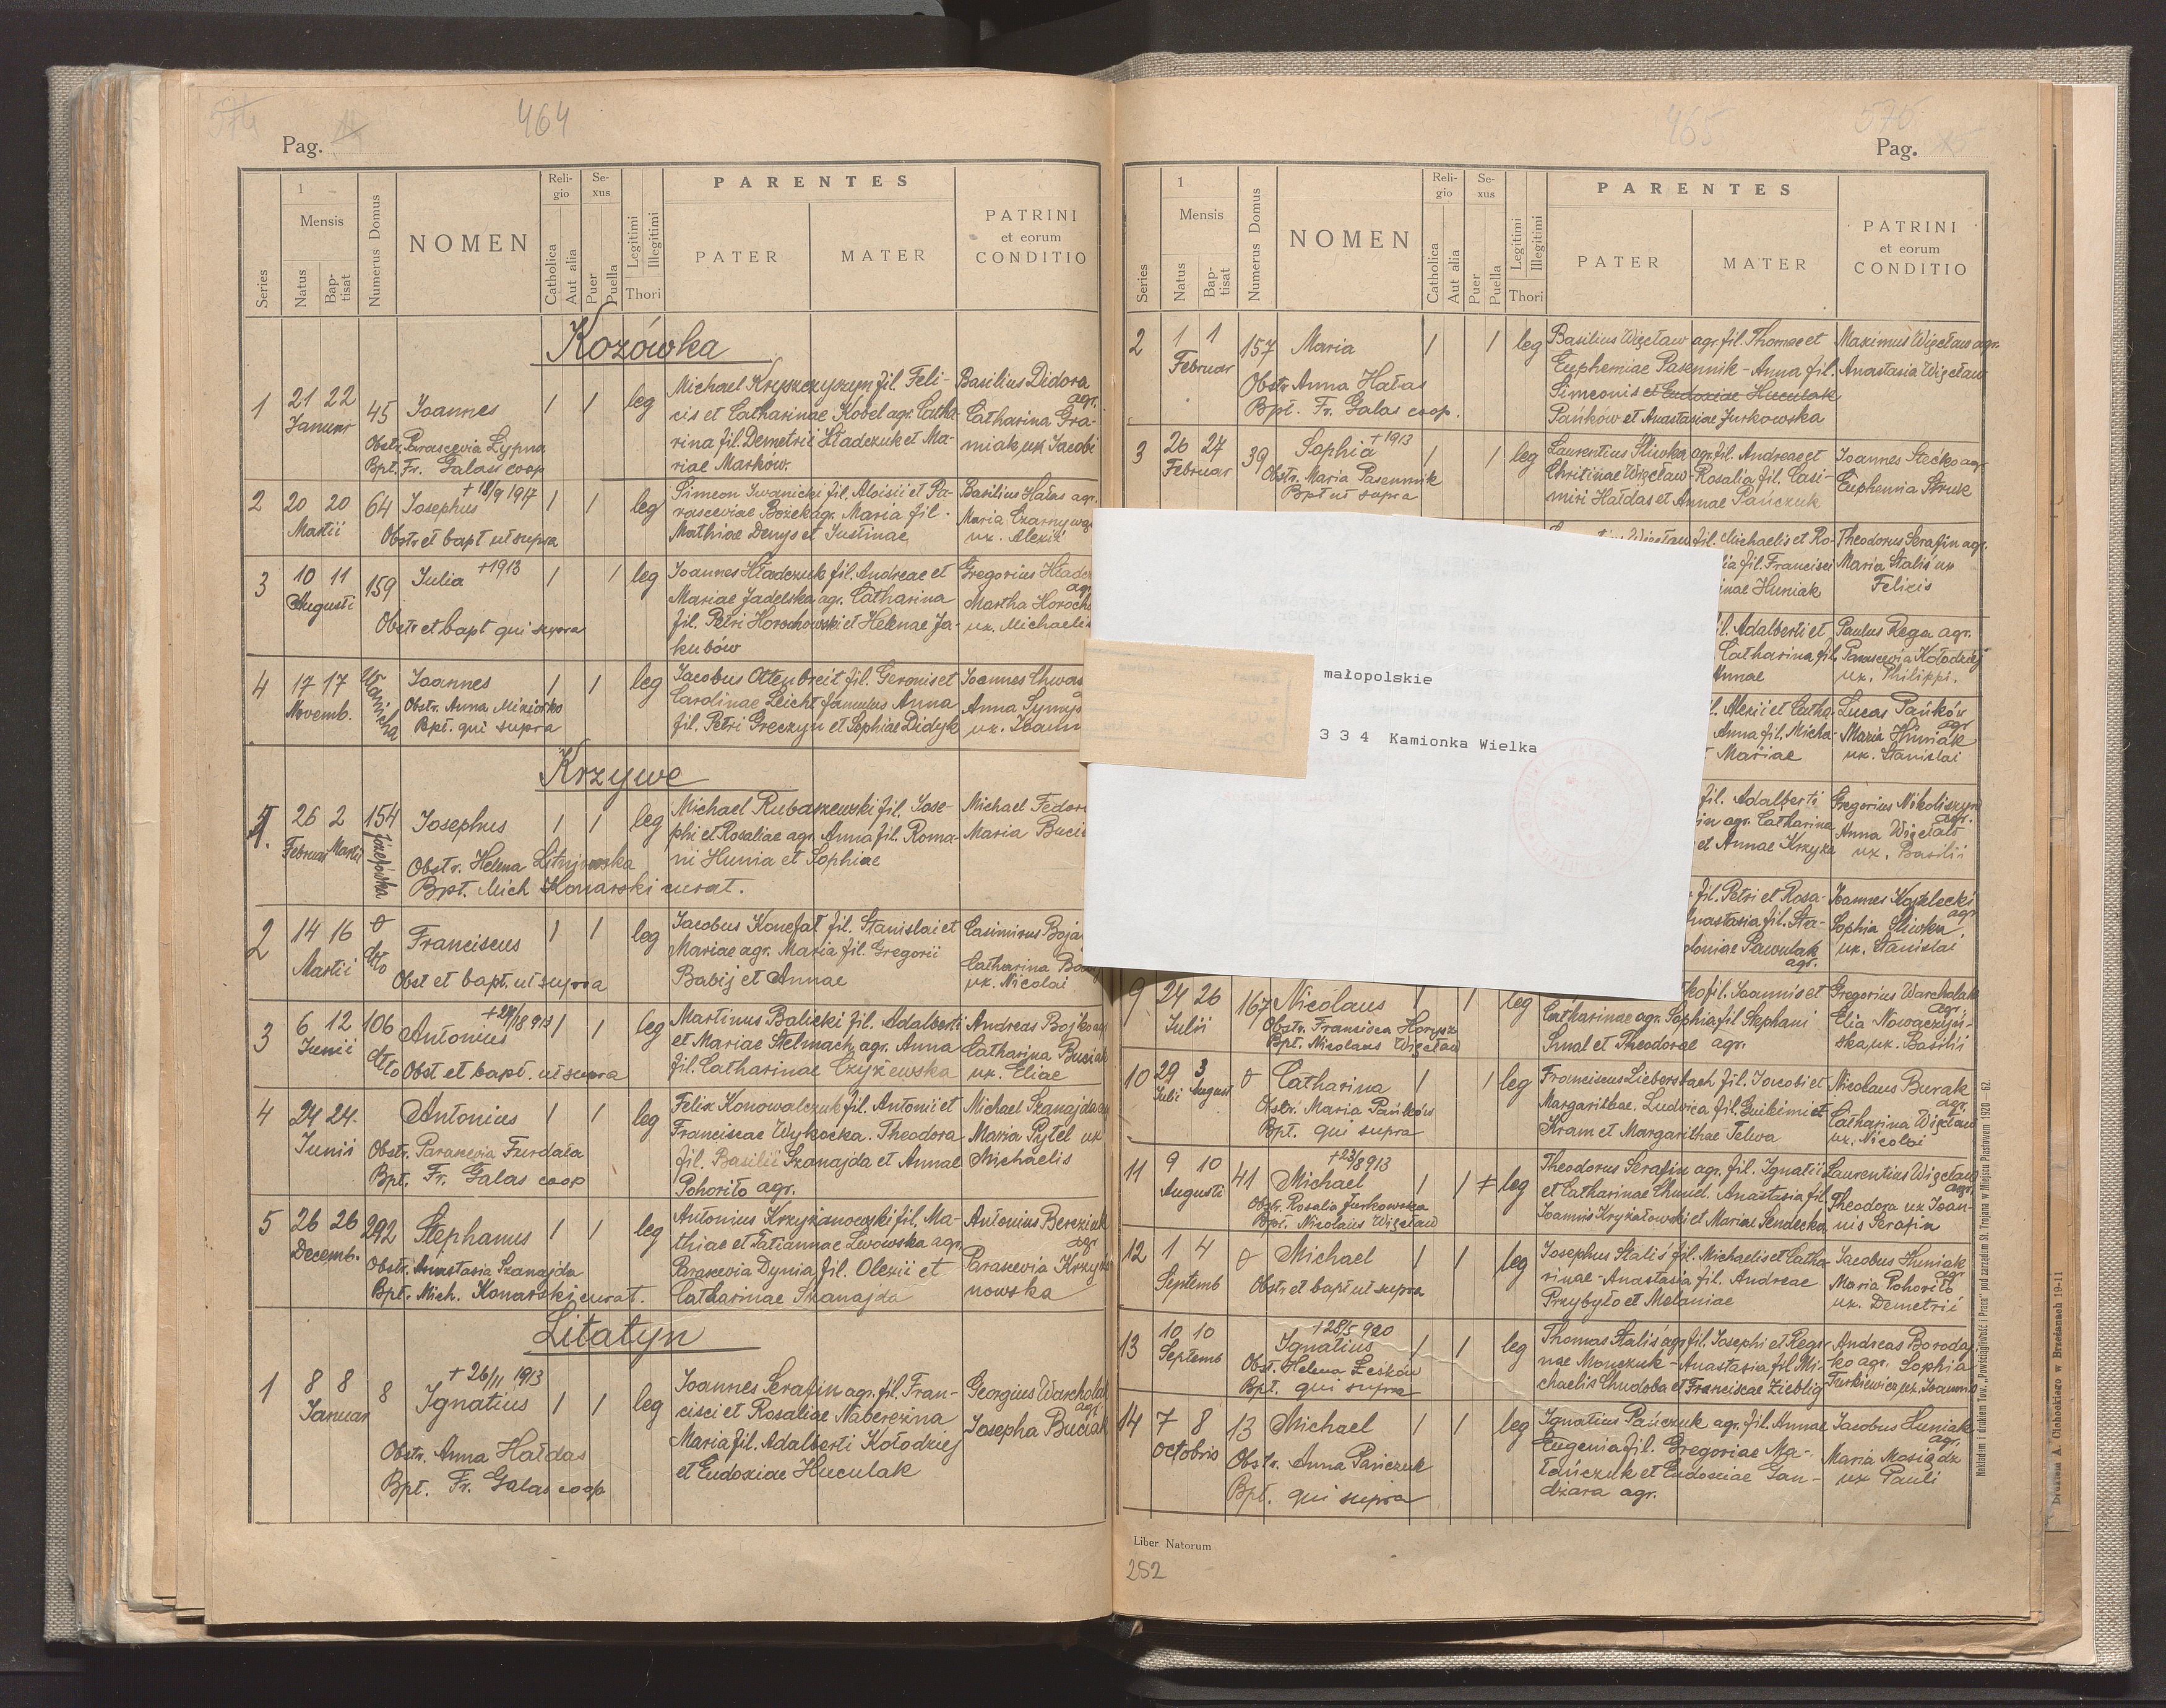 464
Pag.
Series
1
Mensis
Natus
Bap-
tisat
Numerus Domus
NOMEN
Reli-
gio
Catholica
Aut alia
Se-
xus
Puer
Puella
Legitimi
Illegitimi
Thori
PARENTES
PATER
MATER
PATRINI
et eorum
CONDITIO
Kozówka
1
21 22
Januar
45
Joannes
Obstr. Parascevia Lypna
Bpt. Fr. Galas coop
1
1
leg
Michael Kryszczyszyn fil. Feli-
cis et Catharinae Kobel agr. Catha-
rina fil. Demetrii Hładczuk et Ma-
riae Marków.
Basilius Didora
agr.
Catharina Gra-
niak ux Jacobi
2
20 20
Martii
64
+ 18/9 1917
Josephus
Obstr et bapt ut supra
1
1
leg
Simeon Iwanicki fil. Aloisii et Pa-
rasceviae Bożek agr. Maria fil.
Mathiae Denys et Justinae
Basilius Hałas agr.
Maria
ux. Alexii
3
10 11
Augusti
159
Julia +1913
Obstr et bapt qui supra
1
1
leg
Joannes Hładczuk fil. Andreae et
Mariae Jadelska agr. Catharina
fil. Petri Horochowski et Helenae Ja-
kubów
Gregorius
agr
Martha
ux. Michaelis
4
17 17
Novemb.
Joannes
Obstr. Anna
Bpt. qui supra
1
1
leg
Jacobus Ottenbreit fil. Geronis et
Carolinae Leicht famulus Anna
fil. Petri Greczyn et Sophiae Didyk
Joannes
Anna
ux.
Krzywe
1.
26 2
Februar Martii
154
Józefówka
Josephus
Obstr. Helena
Bpt. Mich Konarski curat.
1
1
leg
Michael Rubaszewski fil. Jose-
phi et Rosaliae agr. Anna fil. Roma-
ni Hunia et Sophiae
Michael
Maria
2
14 16
Martii
dto
Franciscus
Obst et bapt. ut supra
1
1
leg
Jacobus Konefał fil. Stanislai et
Mariae agr. Maria fil. Gregorii
Babij et Annae
Casimirus
Catharina
ux. Nicolai
3
6 12
Junii
106
dtto
Antonius
Obst et bapt. ut supra
1
1
leg
Martinus Balicki fil. Adalberti
et Mariae Stelmach agr. Anna
fil. Catharinae Czyżewska
Andreas Bojko agr
Catharina Buciak
ux. Eliae
4
24 24.
Junii
Antonius
Obstr. Parascevia Furdala
Bpt. Fr. Galas coop
1
1
leg
Felix Konowalczuk fil. Antonii et
Franciscae Wykocka. Theodora
fil. Basilii Szanajda et Annae
Pohoriło agr.
Michael Szanajda
Maria Pytel ux
Michaelis
5
26 26
Decemb.
292
Stephanus
Obstr. Anastasia Szanajda
Bpt. Mich. Konarski curat.
1
1
leg
Antonius Krzyżanowski fil. Ma-
thiae et Tatiannae Lwowska agr.
Parascevia Dynia fil. Olexii et
Catharinae Szanajda
Antonius Bereziuk
agr
Parascevia Krzyża
nowska
Litatyn
1
8 8
Januar
8
+ 26/11 1913
Ignatius
Obstr. Anna Hałdas
Bpt. Fr. Galas coop
1
1
leg
Joannes Serafin agr. fil. Fran-
cisci et Rosaliae Naberezina
Maria fil. Adalberti Kołodziej
et Eudoxiae Huculak
Georgius Warcholak
agr.
Josepha Buciak
465
576
Pag.
Series
1
Mensis
Natus
Bap-
tisat
Numerus Domus
NOMEN
Reli-
gio
Catholica
Aut alia
Se-
xus
Puer
Puella
Legitimi
Illegitimi
Thori
PARENTES
PATER
MATER
PATRINI
et eorum
CONDITIO
2
1 1
Februar
157
Maria
Obstr Anna Hałas
Bpt. Fr. Galas coop.
1
1
leg
Basilius Więcław agr. fil. Thomae et
Euphemiae Pasennik - Anna fil.
Simeonis et Eudoxiae Huculak
Pańków et Anastasiae Jurkowska
Maximus Więcław agr.
Anastasia Więcław
3
26 27
Februar
39
Sophia +1913
Obstr. Maria Pasennik
Bpt ut supra
1
1
leg
Laurentius Śliwka agr. fil. Andreae et
Chritinae Więcław - Rosalia fil. Casi-
miri Hałdas et Annae Pańczuk
Joannes Stećko agr
Euphemia Struk
fil. Michaelis et Ro-
fil. Francisci
Huniak
Theodorus Serafin agr.
Maria Staliś ux
Felicis
fil. Adalberti et
Catharina fil.
Annae
Paulus Rega agr.
Parascevia Kołodziej
ux. Philippi.
Alexii et Catha-
Anna fil. Micha-
Mariae
Lucas Pańków
agr
Maria Huniak
ux. Stanislai
fil. Adalberti
agr. Catharina
et Annae Krzyża
Gregorius Nikoliszyn
agr.
Anna Więcław
ux. Basilii
fil. Petri et Rosa-
Anastasia fil. Sta-
Pawulak
agr.
Joannes Kozłecki
agr
Sophia Śliwka
ux. Stanislai
małopolskie
3 3 4 Kamionka Wielka
9
24 26
Julii
167
Nicolaus
Obstr. Francisca
Bpt. Nicolaus Więcław
1
1
leg
fil. Joannis et
Catharinae agr. Sophia fil Stephani
Smal et Theodorae agr.
Gregorius Warcholak
agr.
Elia Nowaczyń-
ska, ux. Basilii
10
29 3
Julii August
Catharina
Obstr. Maria Pańków
Bpt. qui supra
1
1
leg
Franciscus Liebersbach fil. Jacobi et
Margarithae. Ludvica fil.
Kram et Margarithae Telwa
Nicolaus Burak
agr.
Catharina Więcław
ux. Nicolai
11
9 10
Augusti
41
+23/8 913
Michael
Obstr. Rosalia Jurkowska
Bpt. Nicolaus Więcław
1
1
leg
Theodorus Serafin agr. fil. Ignatii
et Catharinae Chmiel. Anastasia fil.
Joannis Kryżałowski et Mariae Sendecka
Laurentius Więcław
agr.
Theodora ux Joan-
nis Serafin
12
1 4
Septemb
Michael
Obstr. et bapt ut supra
1
1
leg
Josephus Staliś fil. Michaelis et Catha
rinae - Anastasia fil. Andreae
Przybyło et Melaniae
Jacobus Huniak
agr
Maria Pohoriło
ux. Demetrii
13
10 10
Septemb
+28/5 920
Ignatius
Obst. Helena Leśków
Bpt. qui supra
1
1
leg
Thomas Staliś agr fil. Josephi et Regi-
nae Monczuk - Anastasia fil Mi-
chaelis Chudoba et Franciscae Zieblig
Andreas Boroday
ko agr. Sophia
Turkiewicz ux. Joannis
14
7 8
octobris
13
Michael
Obstr. Anna Pańczuk
Bpt. qui supra
1
1
leg
Ignatius Pańczuk agr. fil. Annae
Eugenia fil. Gregoriae Ma-
łańczuk et Eudoxiae Gan-
dzara agr.
Jacobus Huniak
agr.
Maria Mosiądz
ux Pauli
Liber Natorum
252
Nakładem i drukiem Tow. „Powściągliwość i Praca" pod zarządem St. Trojana w Miejscu Piastowem 1920—62.
Drukiem A. Cichockiego w Brzeżanach 19-11